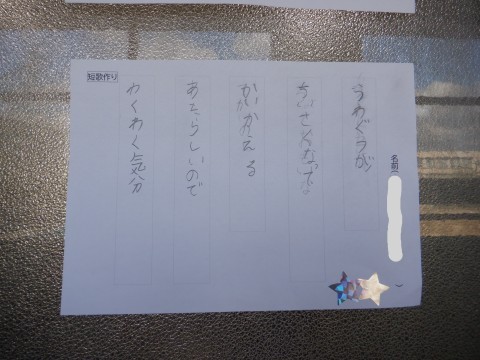 短歌作り
名前
うわぐつが
ちいさくなって
かいかえる
あたらしいので
わくわく気分